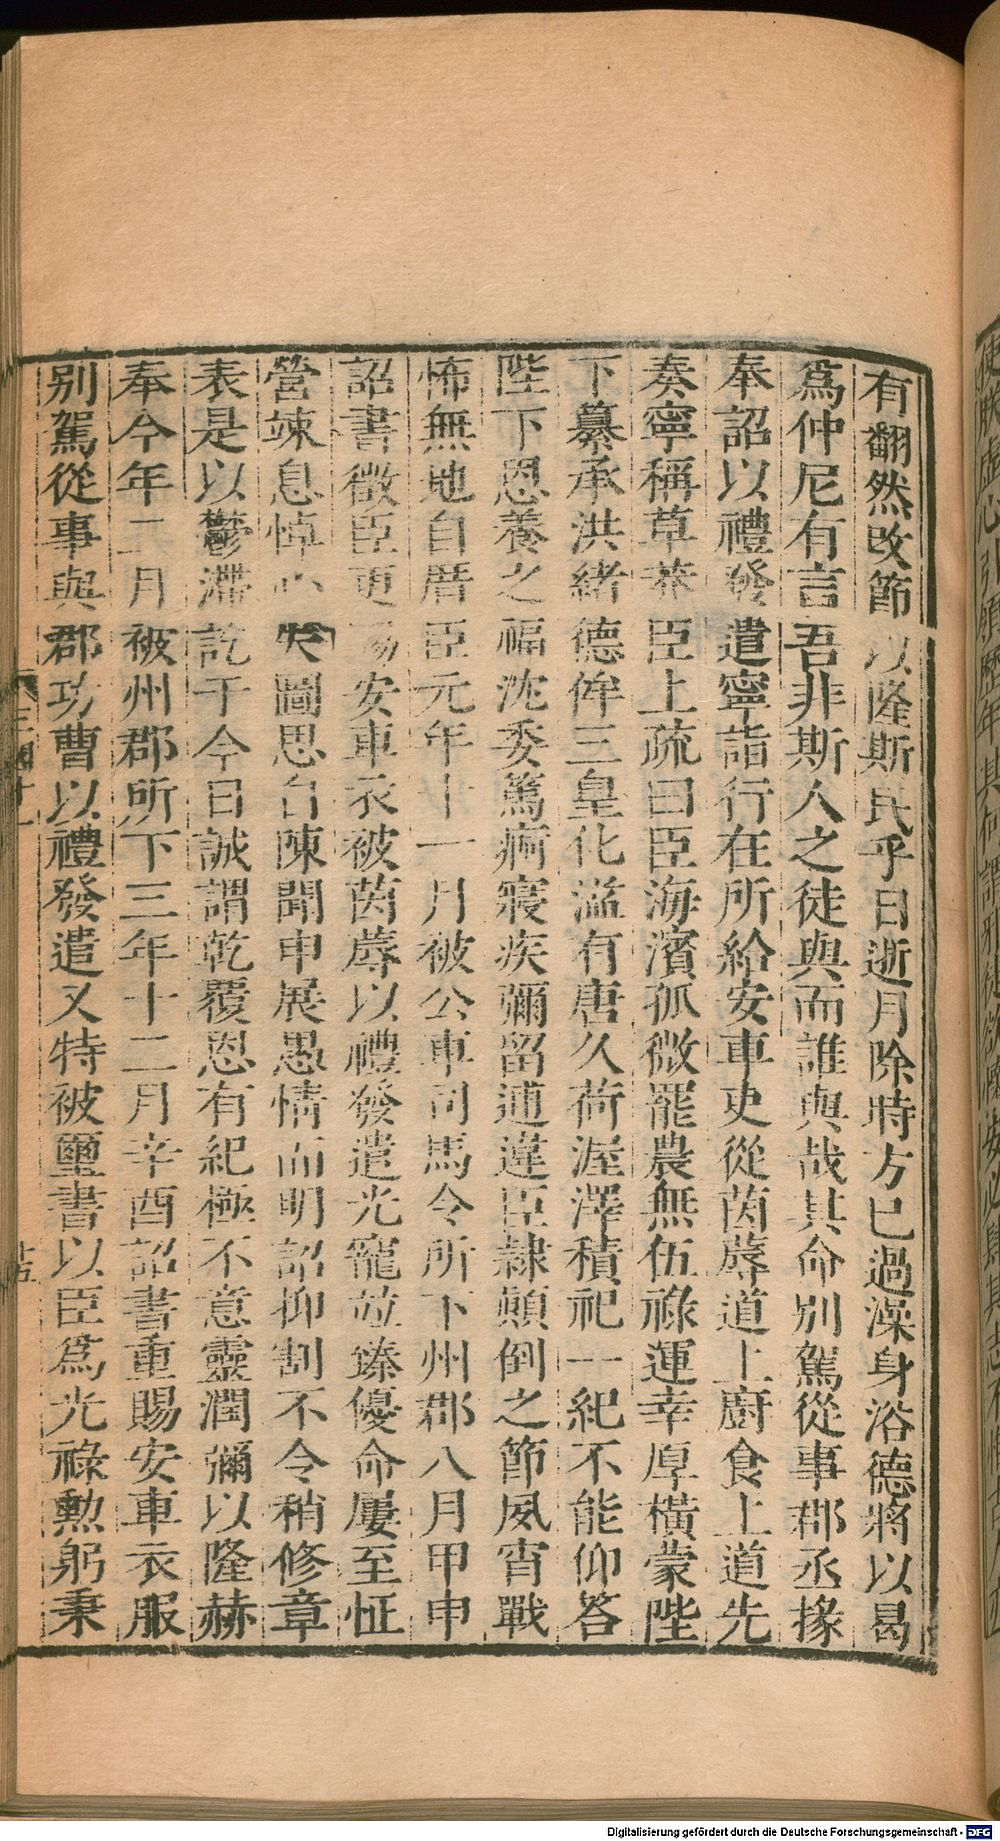 有翻然改節以隆斯民乎日逝月除時方已過澡身浴德將以曷
爲仲尼有言吾非斯人之徒與而誰與哉其命别駕從事郡丞掾
奉詔以禮發遣寧詣行在所給安車吏從茵蓐道上廚食上道先
奏寧稱草莽臣上疏曰臣海濱孤微罷農無伍祿運幸厚橫蒙陛
下纂承洪緒德侔三皇化溢有唐久荷渥澤積祀一紀不能仰荅
陛下恩養之福沈委篤痾寢疾彌留逋違臣隸顛倒之節夙宵戰
怖無地自厝臣元年十一月被公車司馬令所下州郡八月甲申
詔書徵臣更賜安車衣被茵蓐以禮發遣光寵竝臻優命屢至怔
營竦息悼心失圖思自陳聞申展愚情而明詔抑割不令稍修章
表是以鬱滯訖于今日誠謂乾覆恩有紀極不意靈潤彌以隆赫
奉今年二月被州郡所下三年十二月辛酉詔書重賜安車衣服
别駕從事與郡功曹以禮發遣又特被璽書以臣爲光祿勲躬秉
三國十一
Digitalisierung gefördert durch die Deutsche Forschungsgemeinschaft - DFG